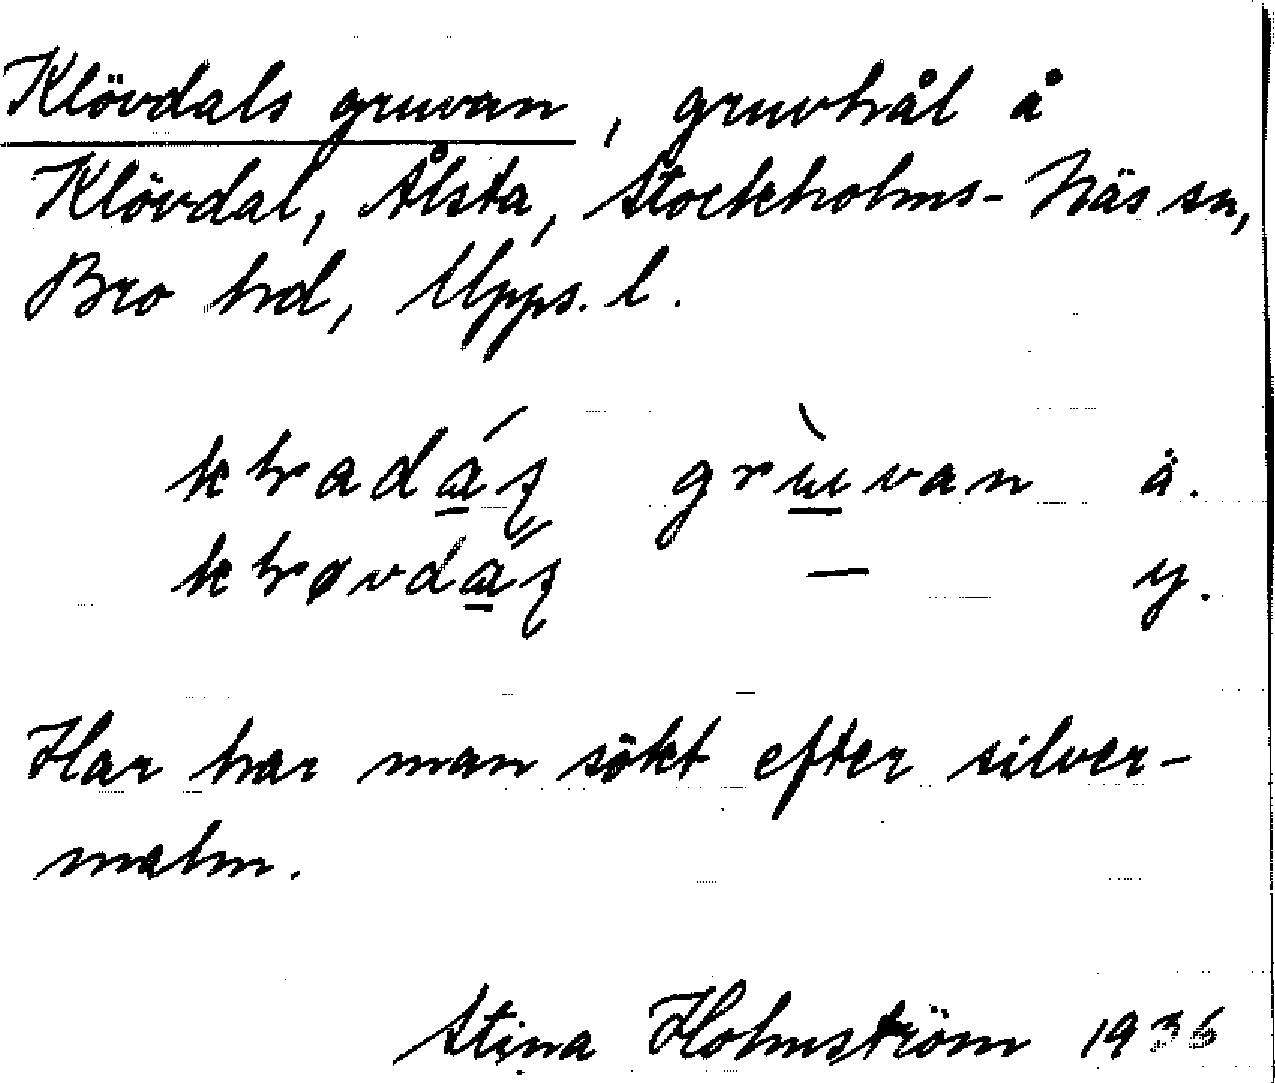 Klövdals gruvan, gruvhål å
Klövdal, Ålsta, Stockholms-Näs sn,
Bro hd, Upps. l.
grùvan ä.
— y.
Här har man sökt efter silver-
malm.
Stina Holmström 1936